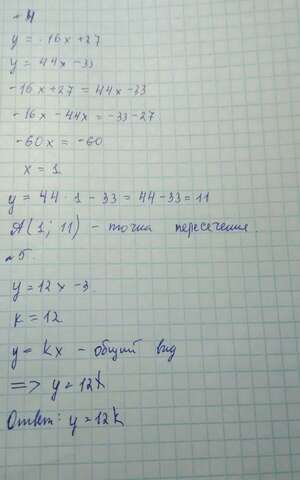 №4
y = -16x + 27
y = 44x - 33
-16x + 27 = 44x - 33
-16x - 44x = -33 - 27
-60x = -60
x = 1
y = 44 · 1 - 33 = 44 - 33 = 11
A(1; 11) - точка пересечения.
№5.
y = 12x - 3.
k = 12
y = kx - общий вид
=> y = 12x
Ответ: y = 12k